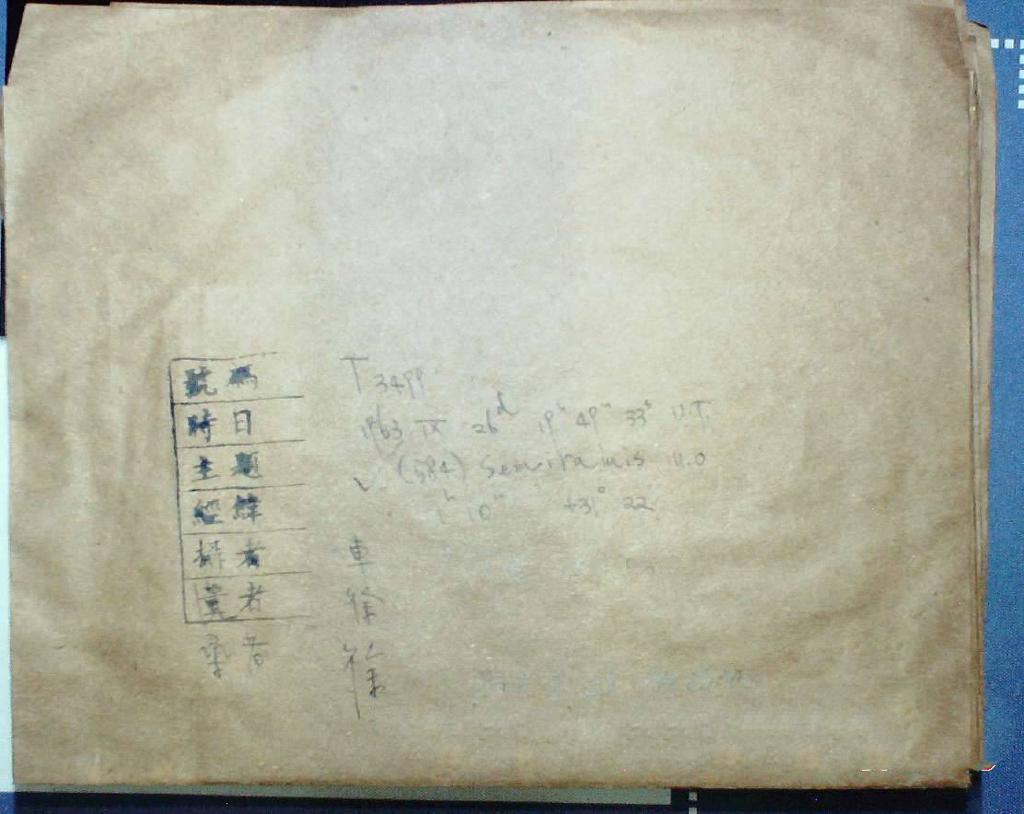 號碼 T 3499
時日 1963 IX 26ᵈ 19ʰ 49ᵐ 33ˢ U.T.
主題 (584) Semiramis 11.0
經緯 1ʰ 10ᵐ +31° 22'
攝者 車
者 徐
者 徐